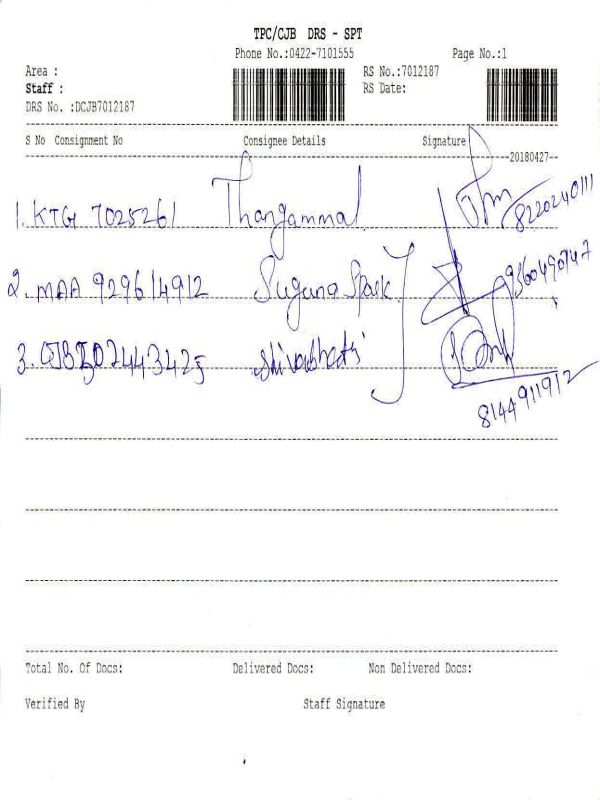 TPC/CJB DRS - SPT
Phone No.:0422-7101555 Page No.:1
Area : RS No.:7012187
Staff : RS Date:
DRS No. :DCJB7012187
S No Consignment No Consignee Details Signature
20180427
1. KTG 7025261 Thangammal 8220240111
2. MAA 929614912 Suguna Spark
3. CJB 502443425 8144911912
Total No. Of Docs: Delivered Docs: Non Delivered Docs:
Verified By Staff Signature